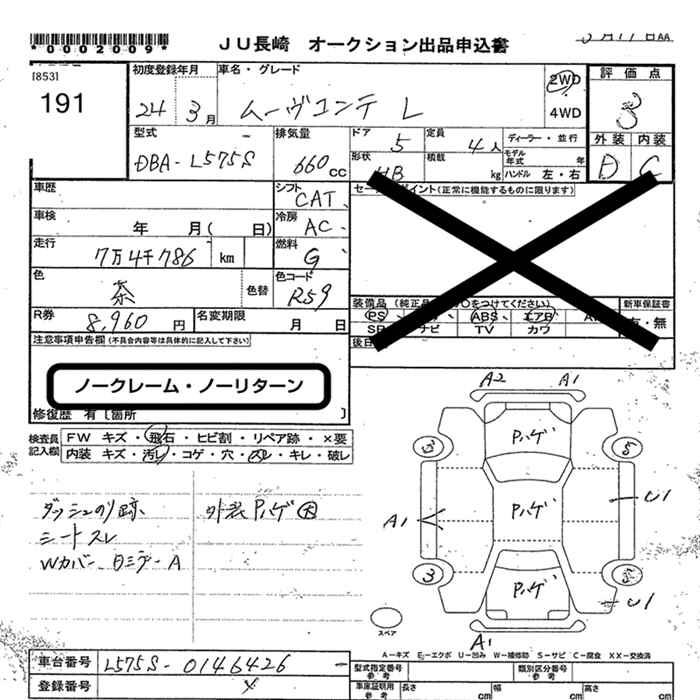 *0002009*
JU長崎 オークション出品申込書
[853]
191
初度登録年月
24 3月
車名・グレード
ムーヴコンテ L
2WD
4WD
評価点
3
外装 内装
D C
型式
DBA-L575S
排気量
660cc
ドア
5
定員
4人
ディーラー・並行
形状
HB
積載
kg
モデル年式 年
ハンドル 左・右
車歴
シフト
CAT
車検
年 月( 日)
冷房
AC
走行
7万4千786 km
燃料
G
色
茶
色替
色コード
R59
R券
8,960円
名変期限
月 日
(正常に機能するものに限ります)
新車保証書
有・無
注意事項申告欄(不具合内容等は具体的に記入して下さい)
ノークレーム・ノーリターン
修復歴 有[箇所 ]
検査員記入欄
FW キズ・飛石・ヒビ割・リペア跡・×要
内装 キズ・汚レ・コゲ・穴・スレ・キレ・破レ
ダッシュのり跡
シートスレ
Wカバー、日ミラーA
外装Pハゲ 大
A2 A1
Pハゲ
Pハゲ
Pハゲ
A1
U1
U1
A1
スペア
A-キズ E-エクボ U-凹み W-補修跡 S-サビ C-腐食 XX-交換済
車台番号
L575S-0146426
登録番号
型式指定番号 参考
類別区分番号 参考
車庫証明用 参考
長さ cm
幅 cm
高さ cm